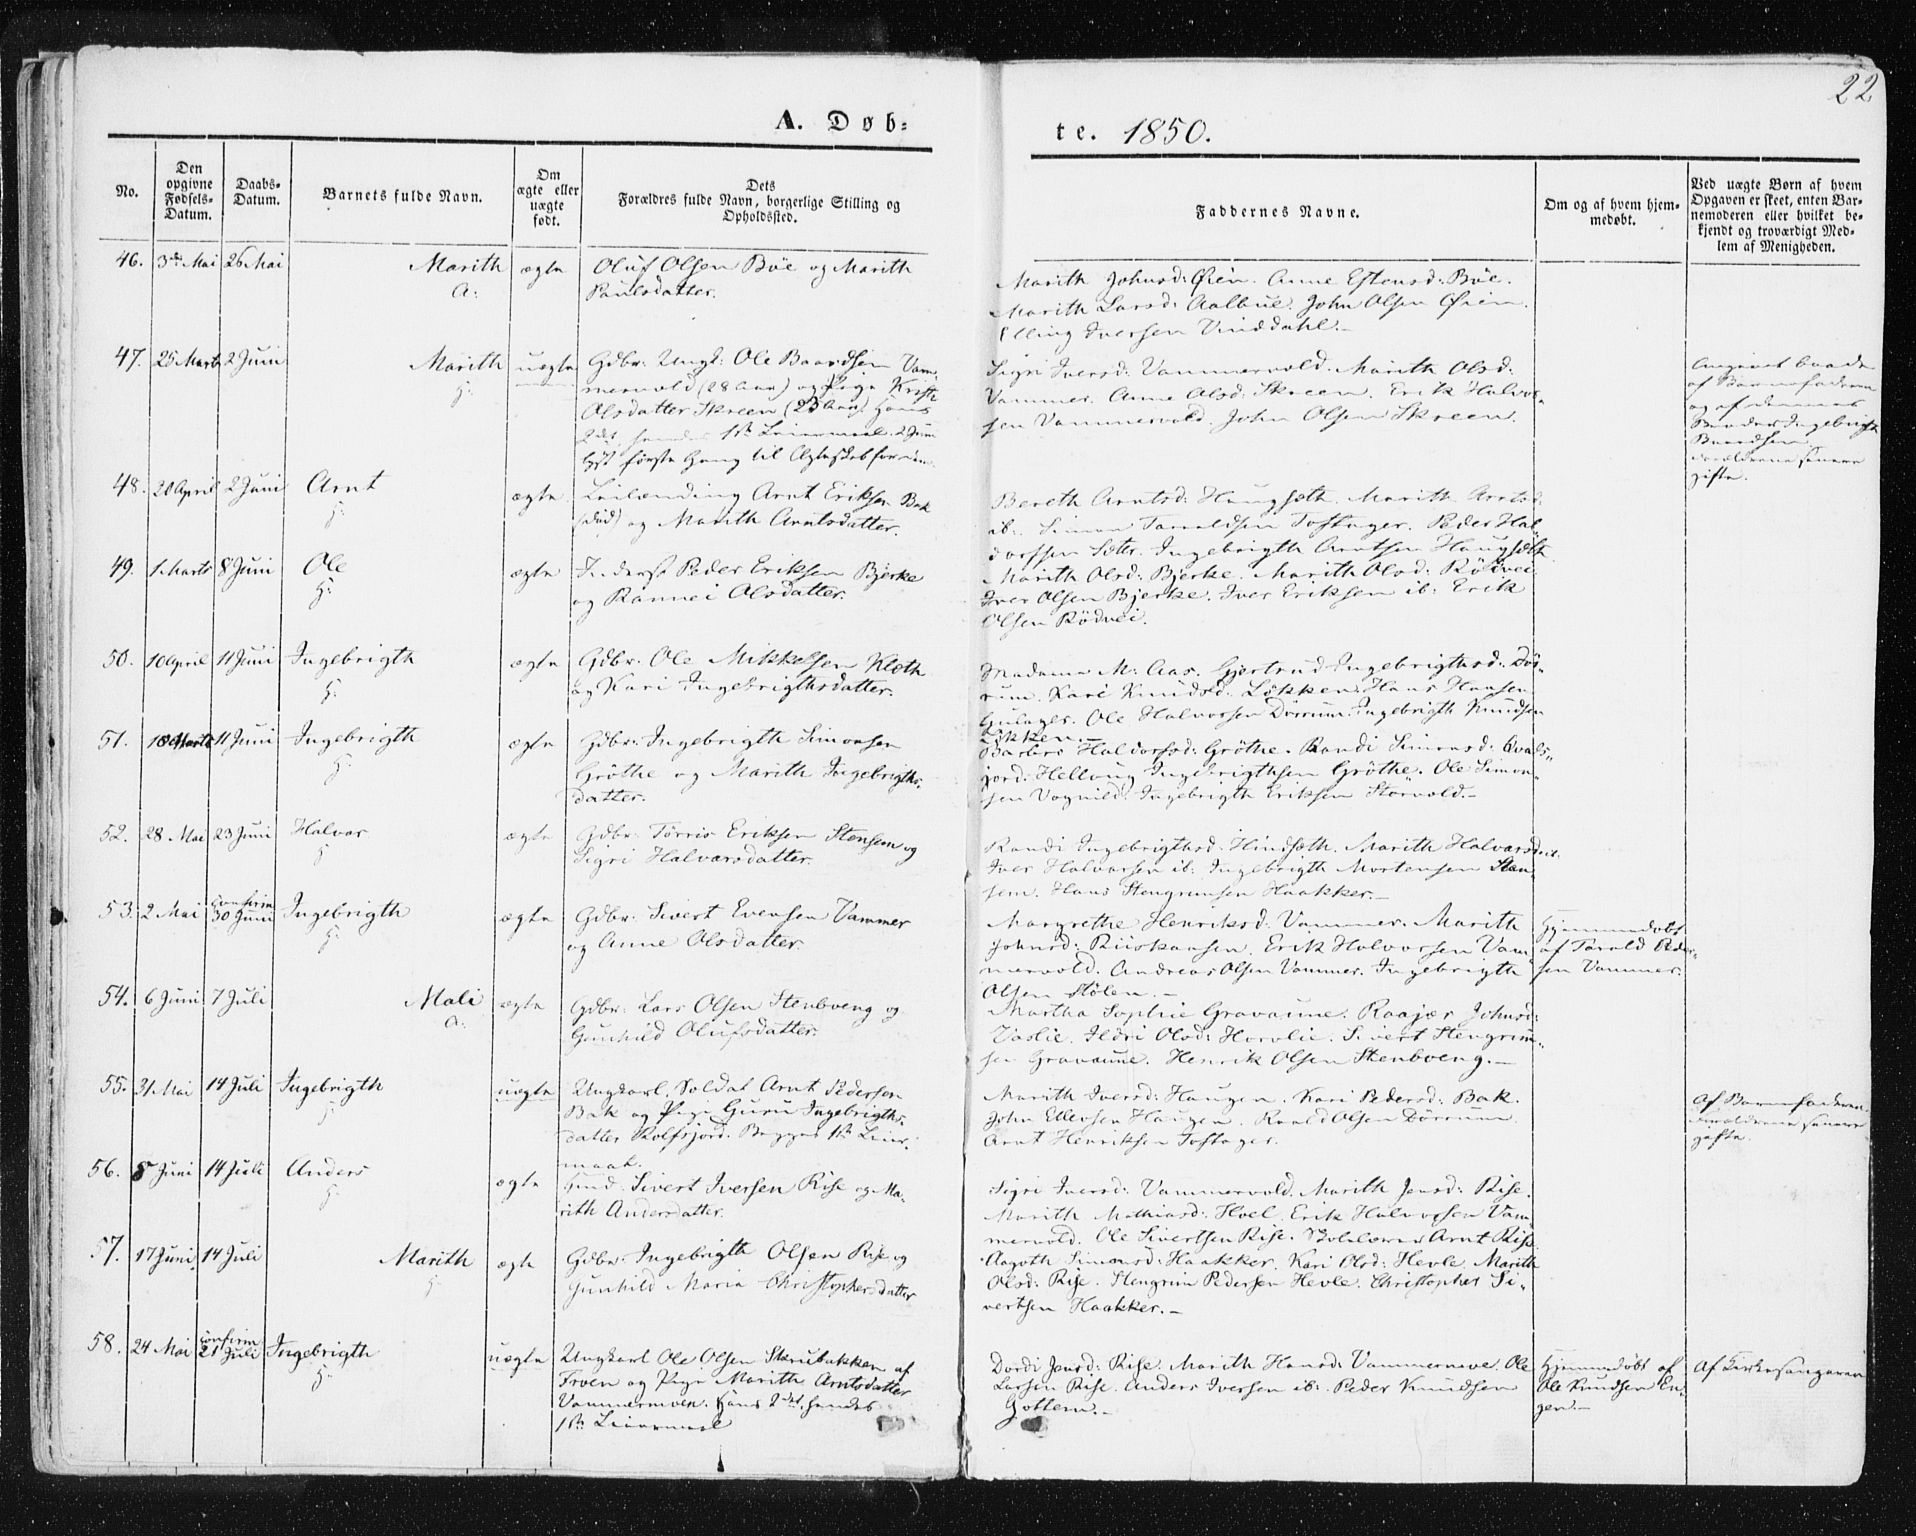 22
A. Døb-
te. 1850.
No.
Den opgivne Fødsels-Datum.
Daabs-Datum.
Barnets fulde Navn.
Om ægte eller uægte født.
Dets Forældres fulde Navn, borgerlige Stilling og Opholdssted.
Faddernes Navne.
Om og af hvem hjem-
medøbt.
Ved uægte Børn af hvem
Opgaven er skeet, enten Bar-
nemoderen eller hvilket be-
kjendt og troværdigt Med-
lem af Menigheden.
46. 3de Mai 26 Mai Marith ægte Oluf Olsen Böe og Marith
A: Paulsdatter.
Marith Johnsd: Øien. Anne Estensd: Böe.
Marith Larsd: Aalbue. John Olsen Øien.
Elling Iversen Vinddahl.-
47. 25 Marts 2 Juni Marith uægte Gdbr: Ungk: Ole Baardsen Vam-
H: mervold (28 Aar) og Pige
Olsdatter Skreen (23 Aar) Hans
2det, hendes 1ste Leiermaal. 2 Juni
lyst første Gang til Ægteskab for dem.
Sigri Iversd: Vammervold. Marith Olsd:
Vammer. Anne Olsd: Skreen. Erik Halvor-
sen Vammervold. John Olsen Skreen.
Angivet baade
af Barnefaderen
og af dennes
Broder Ingebrigt
Baardsen.
Forældrene senere
gifte.
48. 20 April 2 Juni Arnt ægte Leilænding Arnt Eriksen Bak
H: (död) og Marith Arntsdatter.
Bereth Arntsd: Haugsæth. Marith Arntsd:
ib: Simon Taraldsen Toftager. Peder Hal-
dorssen Sæter. Ingebrigth Arntsen Haugsæth
49. 1 Marts 8 Juni Ole ægte Inderst Peder Eriksen Bjerke
H: og Rønnei Olsdatter.
Marith Olsd: Bjerke. Marith Olsd: Rödvei
Iver Olsen Bjerke. Iver Eriksen ib: Erik
Olsen Rödvei.
50. 10 April 11 Juni Ingebrigth ægte Gdbr: Ole Mikkelsen Kleth
H: og Kari Ingebrigthsdatter.
Madame M: Aas. Gjertrud Ingebrigthsd: Dör-
rum. Kari Knudsd: Løkken. Hans Hansen
Gulager. Ole Halvorsen Dörrum. Ingebrigth Knudsen
Løkken.-
51. 18 Marts 11 Juni Ingebrigth ægte Gdbr: Ingebrigth Simonsen
H: Gröthe og Marith Ingebrigths-
datter.
Barbro Haldorsd: Gröthe. Randi Simonsd: Qvals-
jord. Helloug Ingebrigthsen Gröthe. Ole Simon-
sen Vognild. Ingebrigth Eriksen Storvold.-
52. 28 Mai 23 Juni Halvor ægte Gdbr: Törris Eriksen Stensem og
H Sigri Halvorsdatter.
Randi Ingebrigthsd: Hindsæth. Marith Halvorsd:
Iver Halvorsen ib: Ingebrigth Mortensen Sten-
sem. Hans Stengrimsen Haakker.-
53. 2 Mai confirm 30 Juni Ingebrigth ægte Gdbr: Sivert Evensen Vammer
H: og Anne Olsdatter
Margrethe Henriksd: Vammer. Marith
Johnsd: Riiskaasen. Erik Halvorsen Vam-
mervold. Andreas Olsen Vammer. Ingebrigth
Olsen Stölen.-
Hjemmedøbt
af Tarald Peder-
sen Vammer.
54. 6 Juni 7 Juli Mali ægte Gdbr: Lars Olsen Stenboeng og
A: Gunhild Olufsdatter.
Martha Sophie Gravaune. Raajær Johnsd:
Vaslie. Ildri Olsd: Horvlie. Sivert Stengrim-
sen Gravaune. Henrik Olsen Stenboeng.-
55. 31 Mai 14 Juli Ingebrigth uægte Ungkarl. Soldat Arnt Pedersen
H: Bak og Pige Guru Ingebrigths-
datter Rolfsjord. Begges 1ste Leier-
maal.
Marith Iversd: Haugen. Kari Pedersd: Bak.
John Ellevsen Haugen. Roald Olsen Dörrum
Arnt Henriksen Toftager.
Af Barnefaderen.
Forældrene senere
gifte.
56. 8 Juni 14 Juli Anders ægte Sivert Iversen Rise og Ma-
H: rith Andersdatter.
Sigri Iversd: Vammervold. Marith Jensd: Rise.
Marith Mathiasd: Hoel. Erik Halvorsen Vam-
mervold. Ole Sivertsen Rise. Skolelærer Arnt Rise.
57. 17 Juni 14 Juli Marith ægte Gdbr: Ingebrigth Olsen Rise og
H Gunhild Maria Christophersdatter
Aagoth Simonsd: Haakker. Kari Olsd: Hevle. Marith
Olsd: Rise. Stengrim Pedersen Hevle. Christopher Si-
vertsen Haakker.-
58. 24 Mai confirm 21 Juli Ingebrigth uægte Ungkarl Ole Olsen Skrubakken af
H: Troen og Pige Marith Arntsdatter
Vammermoen. Hans 2det, hendes
1ste Leiermaal
Dordi Jensd: Rise. Marith Hansd: Vammermoe. Ole
Larsen Rise. Anders Iversen ib: Peder Knudsen
Gottem.-
Hjemmedøbt af
Ole Knudsen En-
gen.-
Af Kirkesangeren